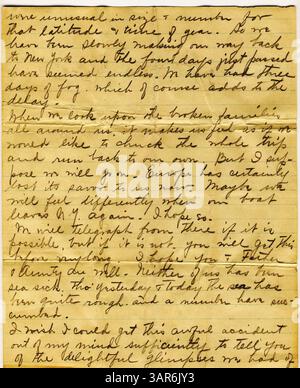 were unusual in size & number for
that latitude & time of year. So we
have been slowly making our way back
to New York and the four days just passed
have seemed endless. We have had three
days of fog, which of course adds to the
delay.
When we look upon the broken families
all around us, it makes us feel as if we
would like to chuck the whole trip
and run back to our own. But I sup-
pose we will go on. Europe has certainly
lost its savor to us now. Maybe we
will feel differently when our boat
leaves N.Y. again. I hope so.
We will telegraph from there if it is
possible, but if it is not, you will get this
before very long. I hope you & Father
& Aunty are well. Neither of us has been
sea sick, tho' yesterday & today the sea has
been quite rough and a number have suc-
cumbed.
I wish I could get this awful accident
out of my mind sufficiently to tell you
of the delightful glimpses we had of
alamy
Image ID: 3AR6JY3
www.alamy.com